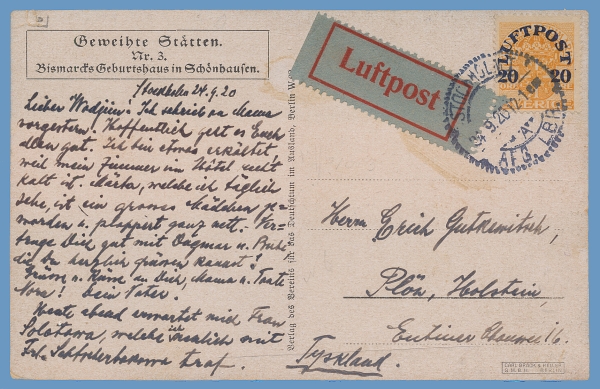 Geweihte Stätten.
Nr. 3.
Bismarcks Geburtshaus in Schönhausen.
Stockholm 24.9.20
Lieber Wadjim! Ich schrieb an Mama
vorgestern. Hoffentlich geht es Euch
allen gut. Ich bin etwas erkältet
weil mein Zimmer im Hôtel recht
kalt ist. Märta, welche ich täglich
sehe, ist ein grosses Mädchen ge-
worden u. plappert ganz nett. Ver-
trage Dich gut mit Dagmar u. Bubi
die Du herzlich grüssen kannst!
Grüsse u. Küsse an Dich, Mama u. Tante
Nora! Dein Vater.
Heute abend erwartet mich Frau
welche ich neulich mit
Frl. traf.
Verlag des Vereins für das Deutschtum im Ausland, Berlin W.
Luftpost
LUFTPOST
20 20
SVERIGE
STOCKHOLM
24.9.20
AFG.
Herrn Erich Gutkewitsch,
Plön, Holstein,
Eutiner Chaussee
Tyskland.